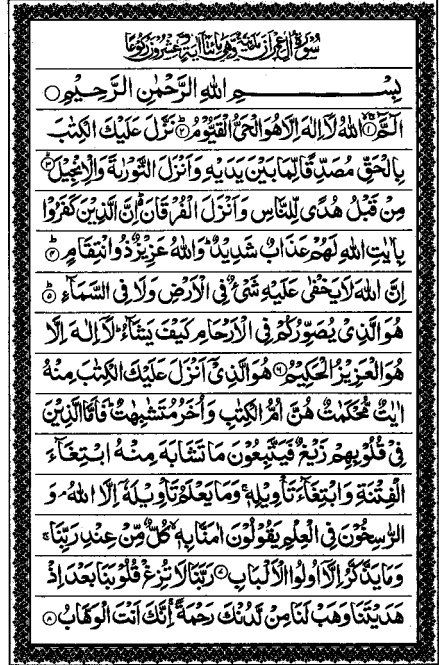 سُوْرَةُ اٰلِ عِمْرٰنَ مَدَنِيَّةٌ وَّهِيَ مِائَتَا اٰيَةٍ وَّعِشْرُوْنَ رُكُوْعًا
بِسْمِ اللهِ الرَّحْمٰنِ الرَّحِيْمِ
الٓمَّٓ ۙ﴿۱﴾ اللهُ لَاۤ اِلٰهَ اِلَّا هُوَ الْحَيُّ الْقَيُّوْمُ ؕ﴿۲﴾ نَزَّلَ عَلَيْكَ الْكِتٰبَ
بِالْحَقِّ مُصَدِّقًا لِّمَا بَيْنَ يَدَيْهِ وَاَنْزَلَ التَّوْرٰىةَ وَالْاِنْجِيْلَ ۙ﴿۳﴾
مِنْ قَبْلُ هُدًى لِّلنَّاسِ وَاَنْزَلَ الْفُرْقَانَ ؕ اِنَّ الَّذِيْنَ كَفَرُوْا
بِاٰيٰتِ اللهِ لَهُمْ عَذَابٌ شَدِيْدٌ ؕ وَاللهُ عَزِيْزٌ ذُو انْتِقَامٍ ﴿۴﴾
اِنَّ اللهَ لَا يَخْفٰى عَلَيْهِ شَيْءٌ فِي الْاَرْضِ وَلَا فِي السَّمَآءِ ؕ﴿۵﴾
هُوَ الَّذِيْ يُصَوِّرُكُمْ فِي الْاَرْحَامِ كَيْفَ يَشَآءُ ؕ لَاۤ اِلٰهَ اِلَّا
هُوَ الْعَزِيْزُ الْحَكِيْمُ ﴿۶﴾ هُوَ الَّذِيْۤ اَنْزَلَ عَلَيْكَ الْكِتٰبَ مِنْهُ
اٰيٰتٌ مُّحْكَمٰتٌ هُنَّ اُمُّ الْكِتٰبِ وَاُخَرُ مُتَشٰبِهٰتٌ ؕ فَاَمَّا الَّذِيْنَ
فِيْ قُلُوْبِهِمْ زَيْغٌ فَيَتَّبِعُوْنَ مَا تَشَابَهَ مِنْهُ ابْتِغَآءَ
الْفِتْنَةِ وَابْتِغَآءَ تَاْوِيْلِهٖ ۚ وَمَا يَعْلَمُ تَاْوِيْلَهٗۤ اِلَّا اللهُ ۘ وَ
الرّٰسِخُوْنَ فِي الْعِلْمِ يَقُوْلُوْنَ اٰمَنَّا بِهٖ ۙ كُلٌّ مِّنْ عِنْدِ رَبِّنَا ۚ
وَمَا يَذَّكَّرُ اِلَّاۤ اُولُوا الْاَلْبَابِ ﴿۷﴾ رَبَّنَا لَا تُزِغْ قُلُوْبَنَا بَعْدَ اِذْ
هَدَيْتَنَا وَهَبْ لَنَا مِنْ لَّدُنْكَ رَحْمَةً ۚ اِنَّكَ اَنْتَ الْوَهَّابُ ﴿۸﴾